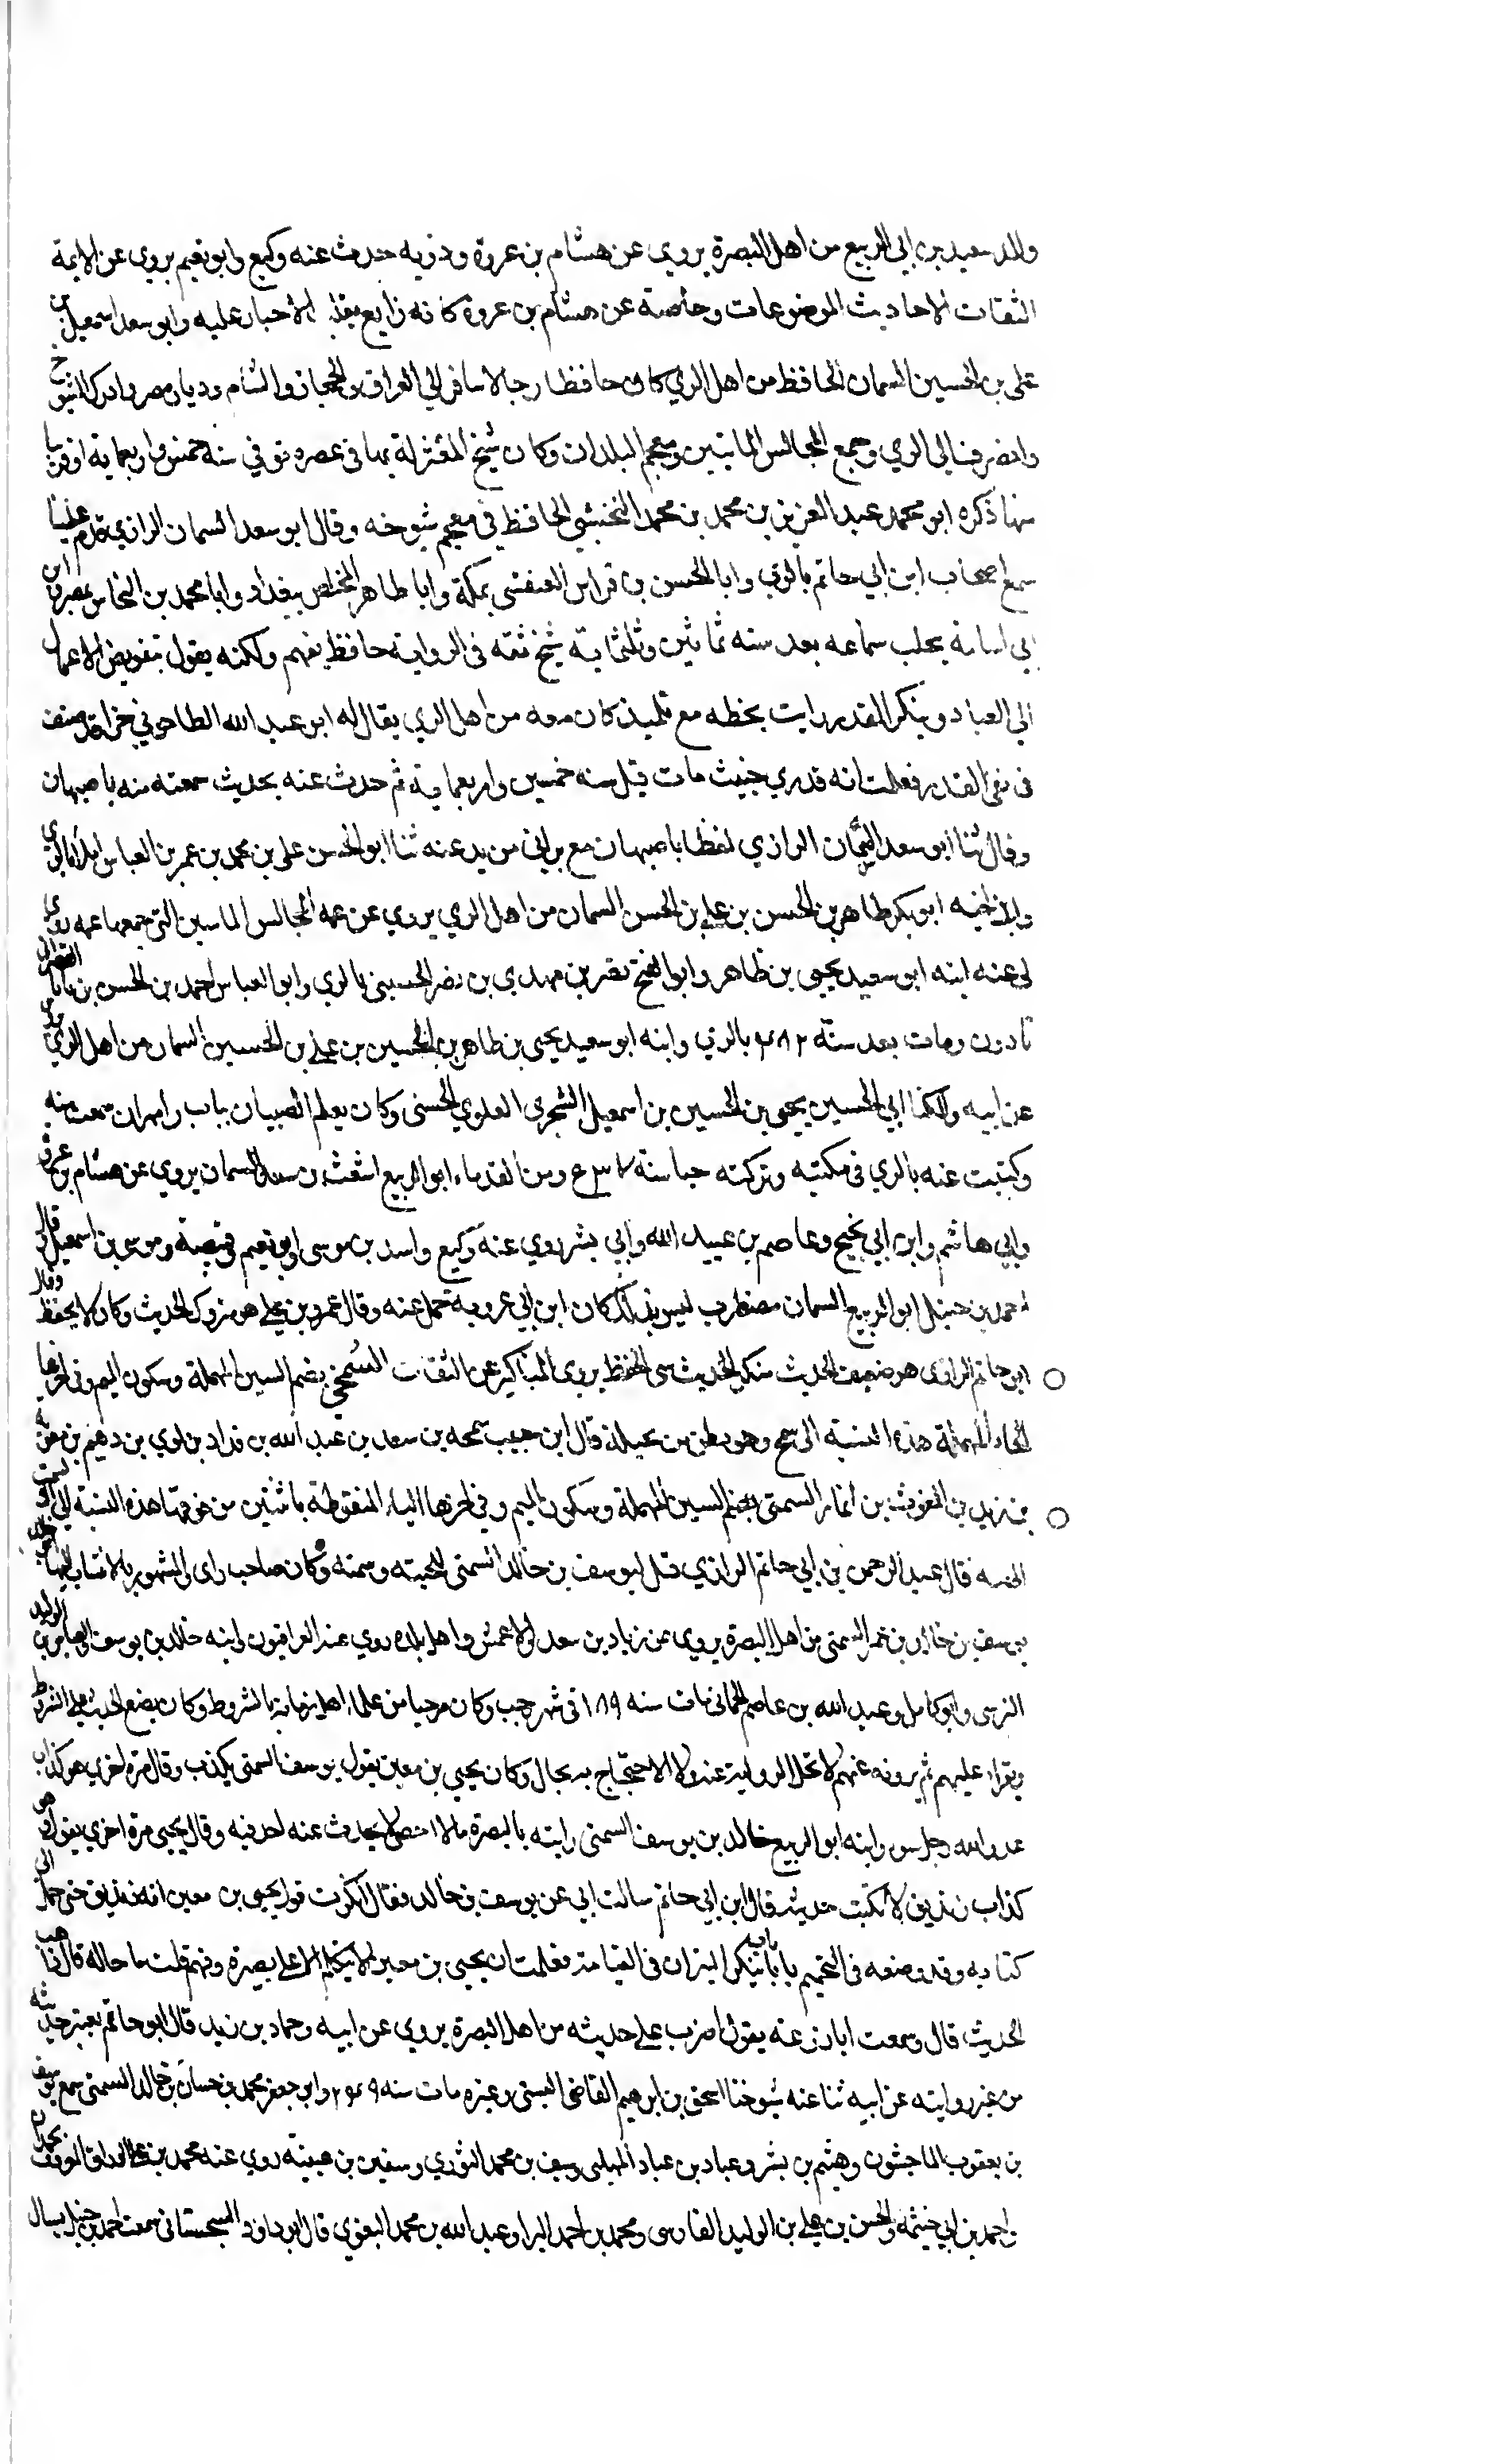 والد سعيد بن ابي الربيع من اهل البصرة يروي عن هشام بن عروة وذويه حدث عنه وكيع وابو نعيم يروي عن الايمة
الثقات الاحاديث الموضوعات وخاصة عن هشام بن عروة كانه ولع بقلب الاخبار عليه وابو سعد اسمعيل بن
علي بن الحسين السمان الحافظ من اهل الري كان حافظا رحالا سافر الي العراق والحجاز والشام وديار مصر وادرك الشيوخ
وانصرف الى الري وجمع المجالس المايتين ومعجم البلدان وكان شيخ المعتزلة بها في عصره توفي سنة خمسين واربعماية او قريبا
منها ذكره ابو محمد عبد العزيز بن محمد بن محمد النخشبي الحافظ في معجم شيوخه وقال ابو سعد السمان الرازي قدم علينا
سمع اصحاب ابن ابي حاتم بالري وابا الحسن بن فراس العبقسي بمكة وابا طاهر المخلص ببغداد وابا محمد بن النحاس بمصر وابن
ابي اسامة بحلب سماعه بعد سنه ثمانين وثلثماية شيخ ثقه في الرواية حافظ يفهم ولكنه يقول بتفويض الاعمال
الي العباد وينكر القدر رايت بخطه مع تلميذ كان معه من اهل الري يقال له ابو عبد الله الطاحوني جزا قد صنف
في نفي القدر فعلمت انه قدري خبيث مات قبل سنه خمسين واربعماية ثم حدث عنه بحديث سمعته منه باصبهان
وقال ثنا ابو سعد السمان الرازي لفظا باصبهان مع براتي من يدعنه ثنا ابو الحسن علي بن محمد بن عمر بن العباس املا بالري
وابن اخيه ابو بكر طاهر بن الحسن بن علي بن الحسن السمان من اهل الري يروي عن عمه المجالس المايتين التي جمعها عمه روى
لي عنه ابنه ابو سعيد يحيى بن طاهر وابو الفتح نصر بن مهدي بن نصر الحسيني بالري وابو العباس احمد بن الحسن بن بابا القصراني
باذون ومات بعد سنة ٤٨٢ بالري وابنه ابو سعيد يحيى بن طاهر بن الحسين بن علي بن الحسين السمان من اهل الري يروي
عن ابيه والكيا ابي الحسين يحيى بن الحسين بن اسمعيل الشجري العلوي الحسني وكان يعلم الصبيان بباب رامهران سمعت منه
وكتبت عنه بالري في مكتبه وتركته حيا سنة ومن القدماء ابو الربيع اشعث بن سعيد السمان يروي عن هشام بن عروة
وابي هاشم وابن ابي نجيح وعاصم بن عبيد الله وابي بشر روي عنه وكيع واسد بن موسى وابو نعيم وقبيصة وموسى بن اسمعيل قال
احمد بن حنبل ابو الربيع السمان مضطرب ليس بذاك كان ابن ابي عروبة حمل عنه وقال عمرو بن علي هو متروك الحديث وكان لا يحفظ وقال
ابو حاتم الرازي هو ضعيف الحديث منكر الحديث سي الحفظ يروى المناكير عن الثقات السمحي بضم السين المهملة وسكون الميم وفي اخرها
الحاء المهملة هذه النسبة الى سمح وهو بطن من بجيلة قال ابن حبيب سمحه بن سعد بن عبد الله بن قداد بن لوي بن دهم بن معوية
بن زيد بن الغوث بن انمار السمتي بفتح السين المهملة وسكون الميم وفي اخرها التاء المنقوطة باثنتين من فوقها هذه النسبة الي السمت
الحسنه قال عبد الرحمن بن ابي حاتم الرازي قيل ليوسف بن خالد السمتي للحيته وسمته وكان صاحب راى والمشهور بالانتساب اليها ابو خالد
يوسف بن خالد بن عمر السمتي من اهل البصرة يروي عن زياد بن سعد والاعمش واهل بلده روي عنه العراقيون وابنه خالد بن يوسف والعباس بن الوليد
النرسي وابو كامل وعبد الله بن عاصم الحماني مات سنه ١٨٩ في شهر رجب وكان مرجيا من علماء اهل زمانه بالشروط وكان يضع الحديث علي الشيوخ
ويقراء عليهم ثم يرويه عنهم لا تحل الرواية عنه ولا الاحتجاج به بحال وكان يحيي بن معين يقول يوسف السمتي يكذب وقال مرة اخري هو كذاب
عدو الله رجل سو وابنه ابو الربيع خالد بن يوسف السمتي رايته بالبصرة مالا احصي لا يحدث عنه احد فيه وقال يحيى مرة اخري يقول هو
كذاب زنديق لا تكتب حديثه قال ابن ابي حاتم سالت ابي عن يوسف بن خالد فقال انكرت قول يحيى بن معين انه زنديق حتى حمل الى
كتابه وقد وضعه في التجهم بابا بابا ينكر الميزان في القيامة فعلمت ان يحيى بن معين لا يتكلم الا علي بصيرة وفهم قلت ما حاله قال ذاهب
الحديث قال وسمعت ابا زرعه يقول اضرب علي حديثه من اهل البصرة يروي عن ابيه وحماد بن زيد قال ابو حاتم يعتبر حديثه
من غير روايته عن ابيه ثنا عنه شيوخنا اسحق بن ابرهيم القاضي البستي وغيره مات سنه ٢٤٩ وابو جعفر محمد بن حسان بن خالد السمتي سمع يوسف
بن يعقوب الماجشون وهشيم بن بشر وعباد بن عباد المهلبي وسيف بن محمد الثوري وسفين بن عيينة روي عنه محمد بن
واحمد بن ابي خيثمه والحسن بن علي بن الوليد الفارسي ومحمد بن احمد البرا وعبد الله بن محمد البغوي قال ابو داود السجستاني سمعت احمد بن حنبل يسال